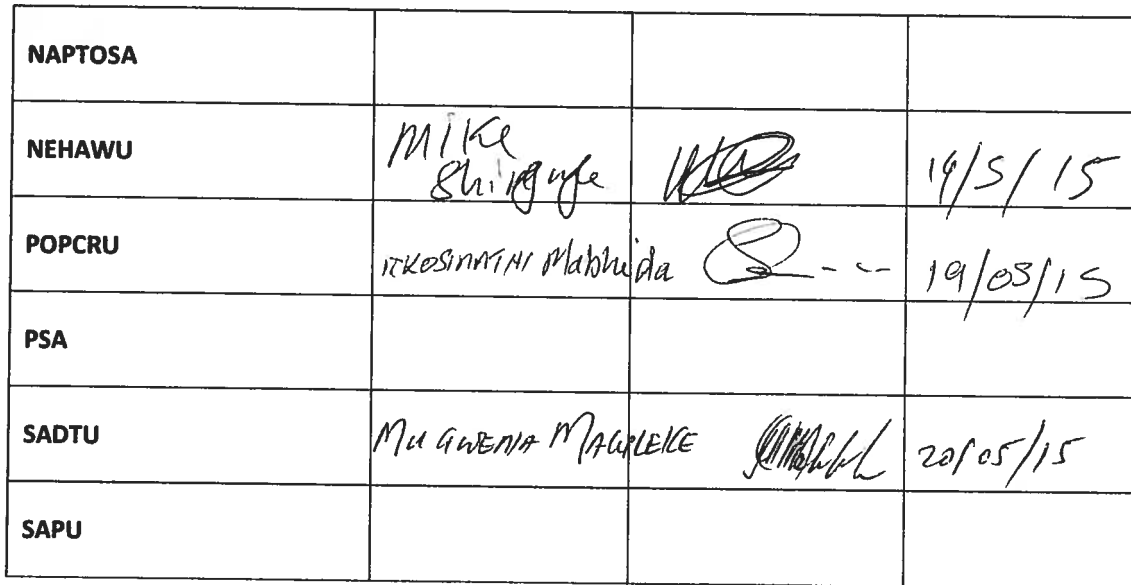 NAPTOSA
NEHAWU Mike 19/5/15
POPCRU Mabhida 19/05/15
PSA
SADTU MUGWENA MALULEKE 20/05/15
SAPU